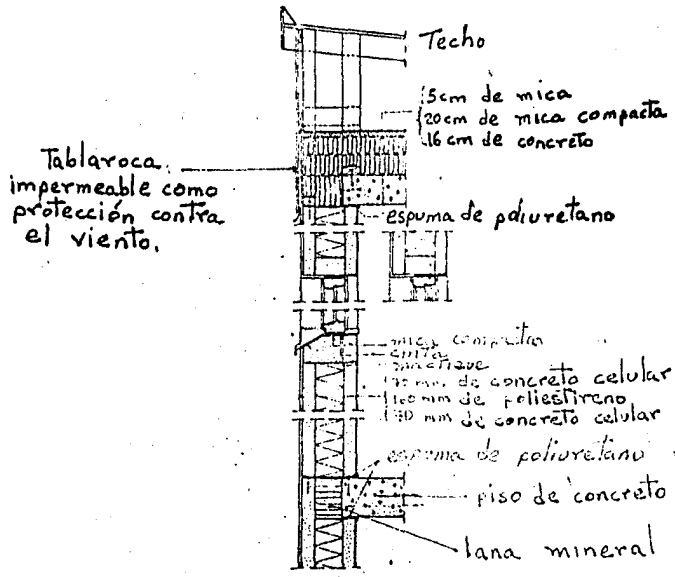 Techo
5cm de mica
20cm de mica compacta
16cm de concreto
Tablaroca
impermeable como
protección contra
el viento.
espuma de poliuretano
mica compacta
cinta
mastique
mm de concreto celular
mm de poliestireno
mm de concreto celular
espuma de poliuretano
piso de concreto
lana mineral